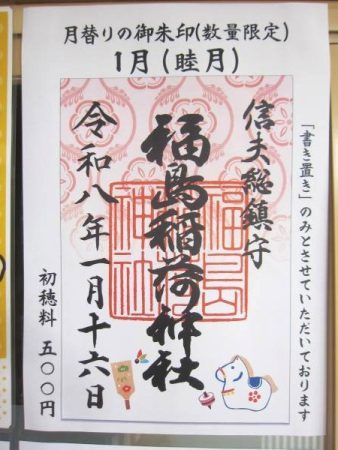 月替りの御朱印(数量限定)
1月(睦月)
「書き置き」のみとさせていただいております
信夫総鎮守
福島稲荷神社
令和八年一月十六日
初穂料 五〇〇円
福島
稲荷
神社